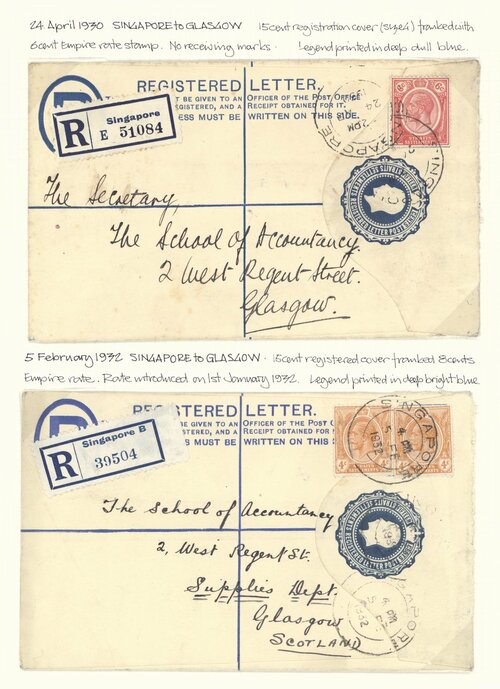 24 April 1930 SINGAPORE to GLASGOW 15cent registration cover (size 4) franked with
6cent Empire rate stamp. No receiving marks. Legend printed in deep dull blue.
REGISTERED LETTER.
MUST BE GIVEN TO AN OFFICER OF THE POST OFFICE
REGISTERED, AND A RECEIPT OBTAINED FOR IT.
ADDRESS MUST BE WRITTEN ON THIS SIDE.
R Singapore
E 51084
SINGAPORE
2-PM
24
STRAITS SETTLEMENTS REGISTERED LETTER POSTAGE
The Secretary,
The School of Accountancy.
2 West Regent Street.
Glasgow.
5 February 1932 SINGAPORE to GLASGOW. 15cent registered cover franked 8cents
Empire rate. Rate introduced on 1st January 1932. Legend printed in deep bright blue
REGISTERED LETTER.
BE GIVEN TO AN OFFICER OF THE POST OFFICE
REGISTERED, AND A RECEIPT OBTAINED FOR
MUST BE WRITTEN ON THIS
R Singapore B
39504
SINGAPORE
4 PM
5 FE
1932
4c 4c
STRAITS SETTLEMENTS REGISTERED LETTER
The School of Accountancy
2, West Regent St.
Supplies Dept.
Glasgow
SCOTLAND
4 PM
5 FE
1932